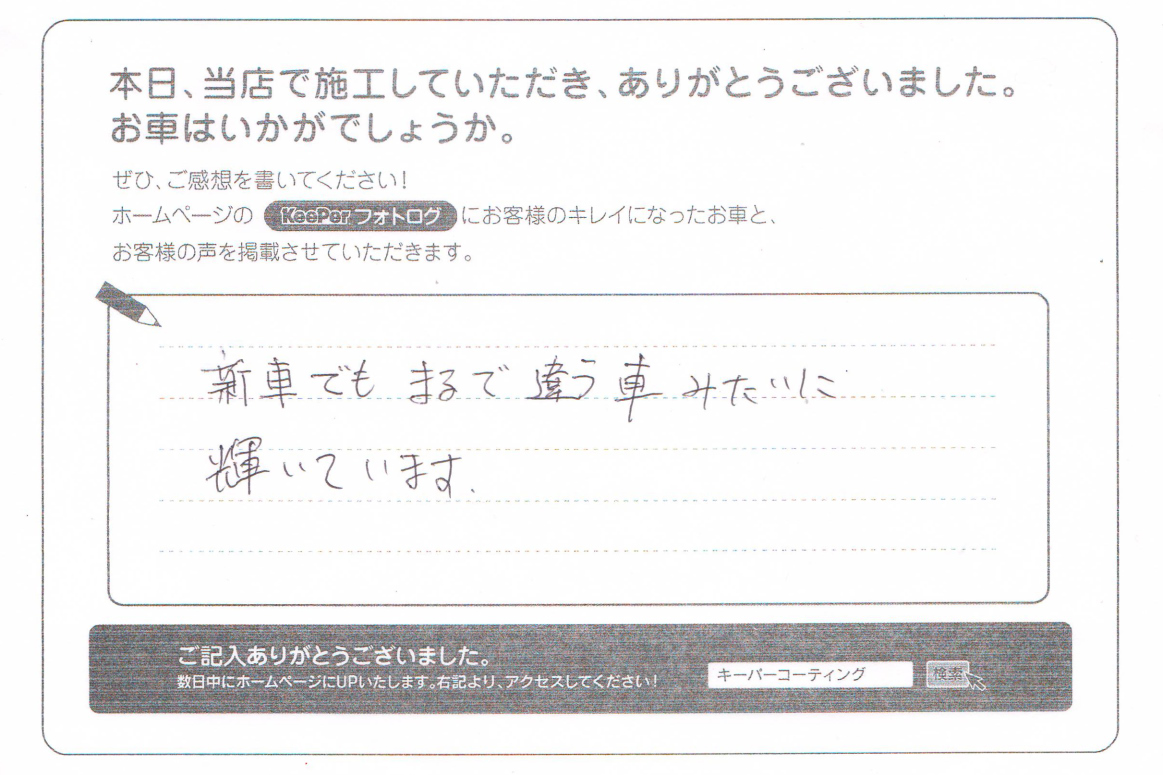 本日、当店で施工していただき、ありがとうございました。
お車はいかがでしょうか。
ぜひ、ご感想を書いてください!
ホームページの KeePer フォトログ にお客様のキレイになったお車と、
お客様の声を掲載させていただきます。
新車でも まるで 違う車 みたいに
輝いています.
ご記入ありがとうございました。
数日中にホームページにUPいたします。右記より、アクセスしてください!
キーパーコーティング 検索